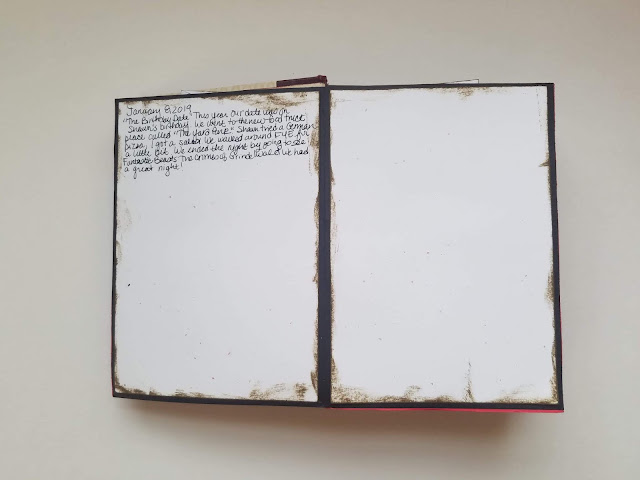 January 8, 2019
"The Birthday Date" This year our date was on
Shawn's birthday. We went to the new food truck
place called "The Yard Park." Shawn tried a German
pizza, I got a salad. We walked around EYE for
a little bit. We ended the night by going to see
Fantastic Beasts The Crimes of Grindelwald. We had
a great night!